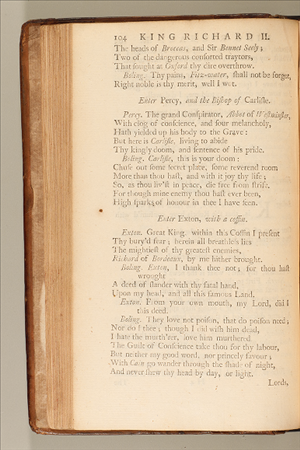 104 KING RICHARD II.
The heads of Broccas, and Sir Bennet Seely;
Two of the dangerous consorted traytors,
That sought at Oxford thy dire overthrow.
Boling. Thy pains, Fitz-water, shall not be forgot,
Right noble is thy merit, well I wot.
Enter Percy, and the Bishop of Carlisle.
Percy. The grand Conspirator, Abbot of Westminster,
With clog of conscience, and sour melancholy,
Hath yielded up his body to the Grave:
But here is Carlisle, living to abide
Thy kingly doom, and sentence of his pride.
Boling. Carlisle, this is your doom:
Chuse out some secret place, some reverend room
More than thou hast, and with it joy thy life;
So, as thou liv'st in peace, die free from strife.
For though mine enemy thou hast ever been,
High sparks of honour in thee I have seen.
Enter Exton, with a coffin.
Exton. Great King, within this Coffin I present
Thy bury'd fear; herein all breathless lies
The mightiest of thy greatest enemies,
Richard of Bordeaux, by me hither brought.
Boling. Exton, I thank thee not; for thou hast
wrought
A deed of slander with thy fatal hand,
Upon my head, and all this famous Land.
Exton. From your own mouth, my Lord, did I
this deed.
Boling. They love not poison, that do poison need;
Nor do I thee; though I did wish him dead,
I hate the murth'rer, love him murthered.
The Guilt of Conscience take thou for thy labour,
But neither my good word, nor princely favour;
With Cain go wander through the shade of night,
And never shew thy head by day, or light.
Lords,